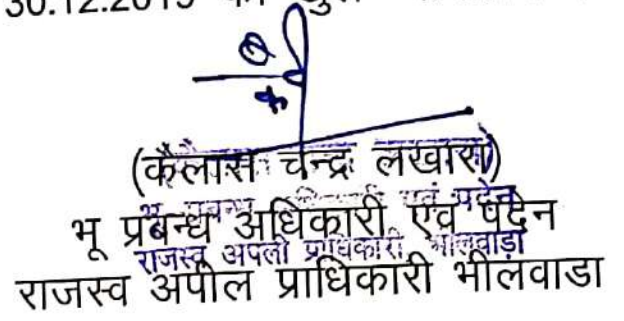 30.12.2019 को
(कैलास चन्द्र लखारा)
भू प्रबन्ध अधिकारी एवं पदेन
राजस्व अपील प्राधिकारी भीलवाडा
राजस्व अपील प्राधिकारी भीलवाडा